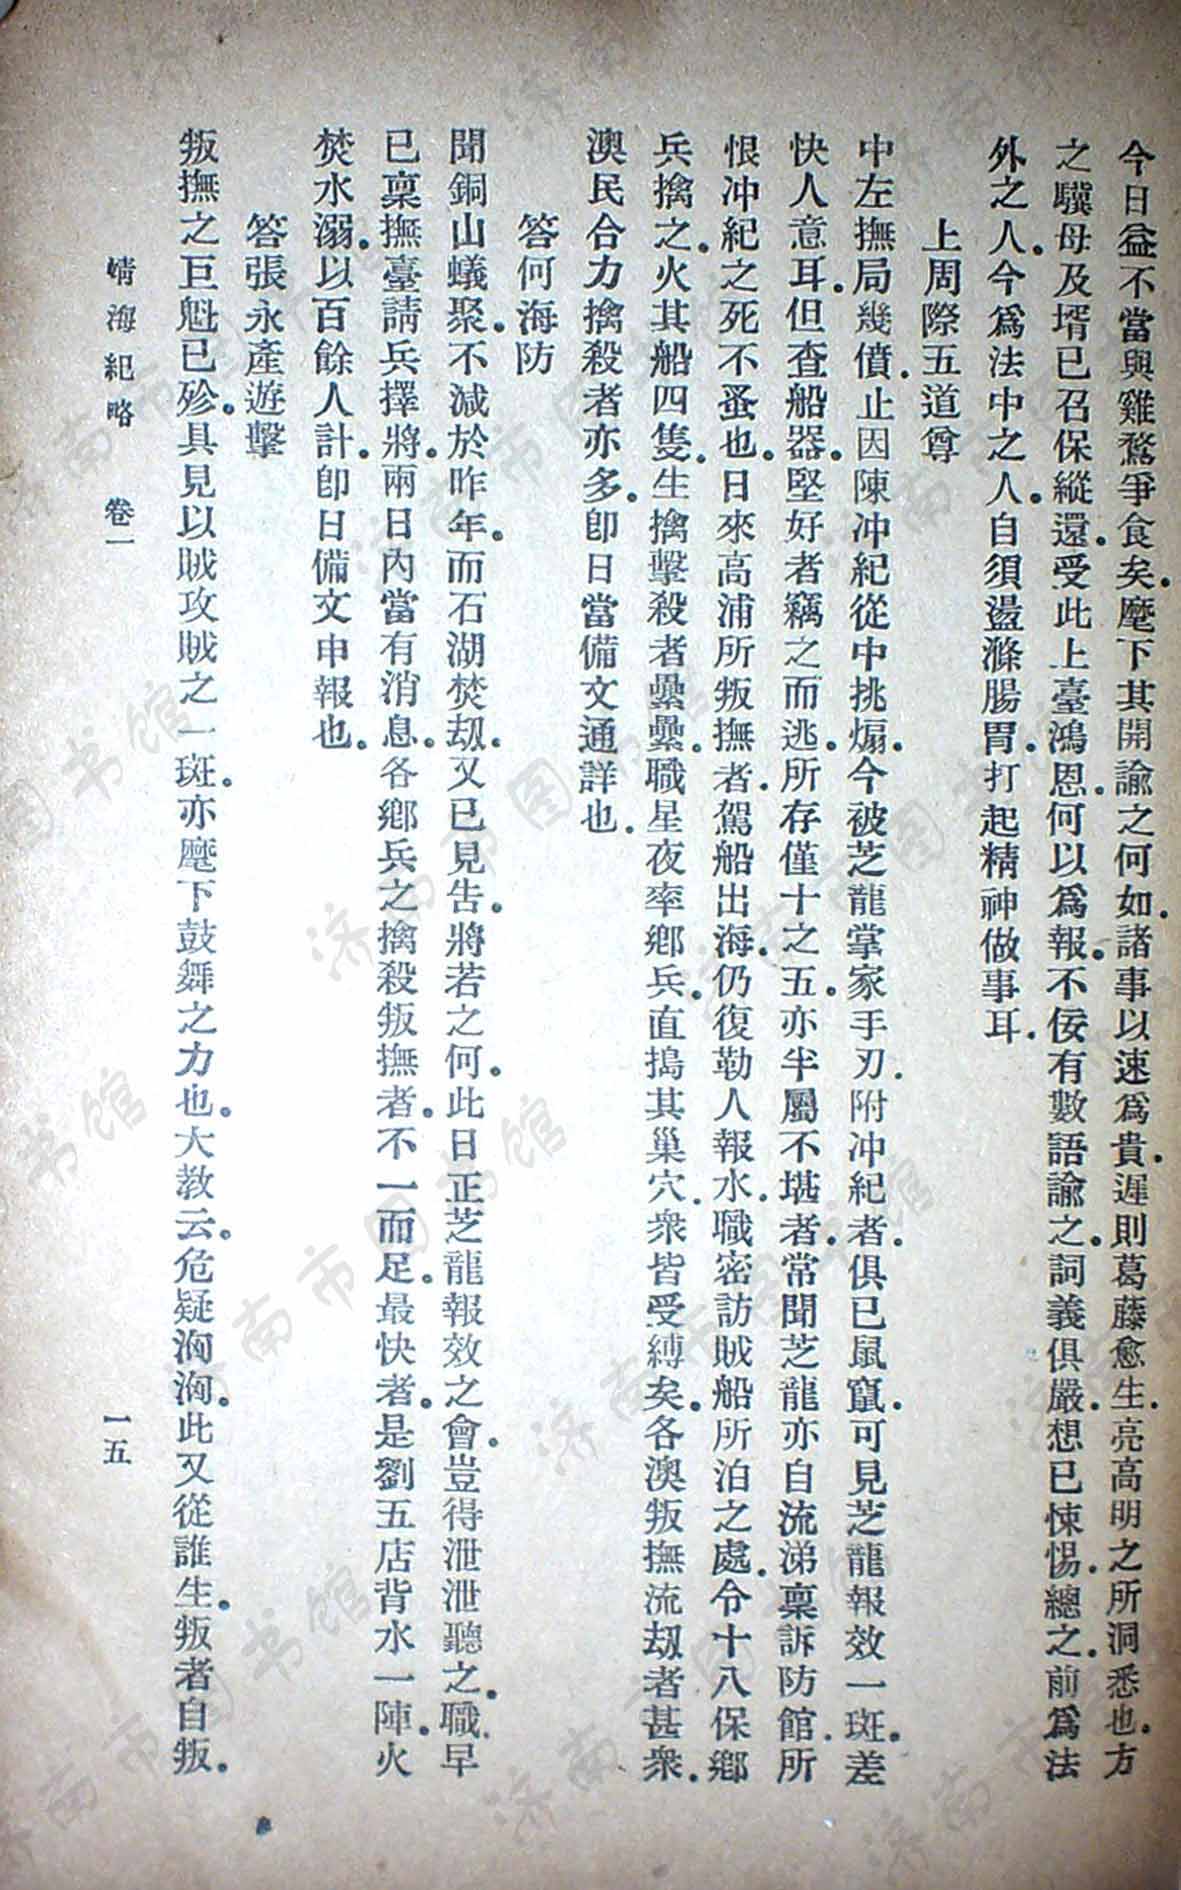 今日益不當與雞鶩爭食矣。麾下其開諭之何如。諸事以速爲貴。遲則葛藤愈生。亮高明之所洞悉也。方
之驥母及壻已召保縱還。受此上臺鴻恩。何以爲報。不佞有數語諭之。詞義俱嚴。想已悚惕。總之。前爲法
外之人。今爲法中之人。自須盪滌腸胃。打起精神做事耳。
上周際五道尊
中左撫局幾僨。止因陳冲紀從中挑煽。今被芝龍掌家手刃。附冲紀者。俱已鼠竄。可見芝龍報效一斑。差
快人意耳。但查船器。堅好者竊之而逃。所存僅十之五。亦半屬不堪者。常聞芝龍亦自流涕稟訴防館。所
恨冲紀之死不蚤也。日來高浦所叛撫者。駕船出海。仍復勒人報水。職密訪賊船所泊之處。令十八保鄉
兵擒之。火其船四隻。生擒擊殺者纍纍。職星夜率鄉兵。直搗其巢穴。衆皆受縛矣。各澳叛撫流刼者甚衆。
澳民合力擒殺者亦多。即日當備文通詳也。
答何海防
聞銅山蟻聚。不減於昨年。而石湖焚刼。又已見告。將若之何。此日正芝龍報效之會。豈得泄泄聽之。職早
已稟撫臺請兵擇將。兩日內當有消息。各鄉兵之擒殺叛撫者。不一而足。最快者。是劉五店背水一陣。火
焚水溺。以百餘人計。即日備文申報也。
答張永產遊擊
叛撫之巨魁已殄。具見以賊攻賊之一斑。亦麾下鼓舞之力也。大教云。危疑洶洶。此又從誰生。叛者自叛。
靖海紀略 卷一 一五
济南市图书馆